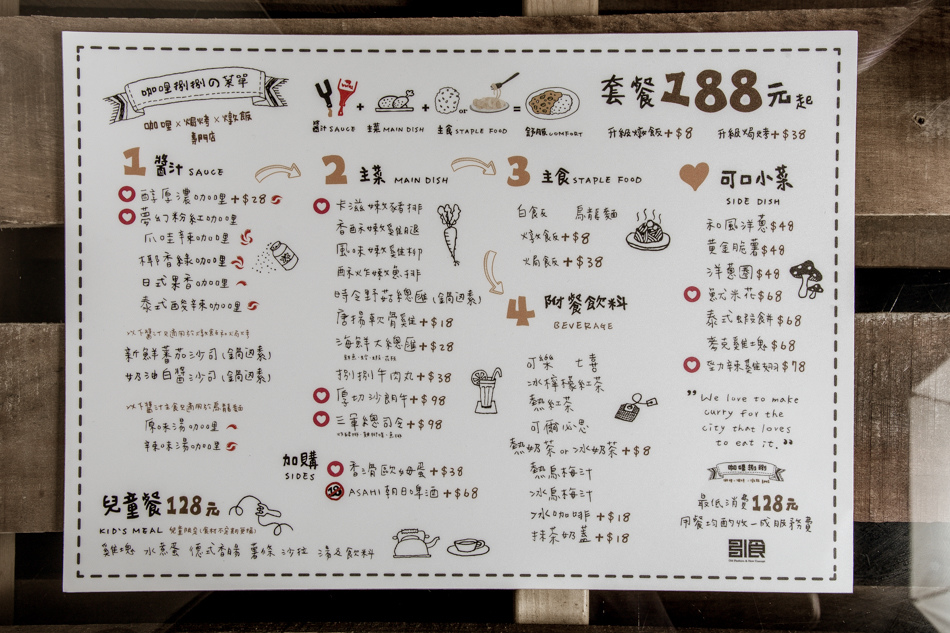 咖哩捌捌の菜單
咖哩×焗烤×燉飯
專門店
醬汁 SAUCE + 主菜 MAIN DISH + 主食 STAPLE FOOD = 舒服 COMFORT
or
套餐188元起
升級燉飯+$8 升級焗烤+$38
1 醬汁 SAUCE
醇厚濃咖哩+$28
夢幻粉紅咖哩
爪哇辣咖哩
椰香綠咖哩
日式果香咖哩
泰式酸辣咖哩
新鮮番茄沙司(鍋邊素)
奶油白醬沙司(鍋邊素)
以下醬汁主食只適用於烏龍麵
原味湯咖哩
辣味湯咖哩
2 主菜 MAIN DISH
卡滋嫩豬排
香酥嫩雞腿
風味嫩雞柳
酥炸嫩魚排
時令野菇總匯(鍋邊素)
唐揚軟骨雞+$18
海鮮大總匯+$28
捌捌牛肉丸+$38
厚切沙朗牛+$98
三軍總司令+$98
加購
SIDES
香滑歐姆蛋+$38
18 ASAHI 朝日啤酒+$68
3 主食 STAPLE FOOD
白飯 烏龍麵
燉飯+$8
焗飯+$38
4 附餐飲料
BEVERAGE
可樂 七喜
冰檸檬紅茶
熱紅茶
可爾必思
熱奶茶 or 冰奶茶+$8
熱烏梅汁
冰烏梅汁
冰咖啡+$18
抹茶奶蓋+$18
可口小菜
SIDE DISH
和風洋蔥$48
黃金脆薯$48
洋蔥圈$48
魷米花$68
泰式蝦餅$68
麥克雞塊$68
勁辣雞翅$78
"We love to make
curry for the
city that loves
to eat it."
咖哩捌捌
最低消費128元
用餐均酌收一成服務費
兒童餐128元
KID'S MEAL
雞塊 水煮蛋 德式香腸 薯條 沙拉 湯及飲料